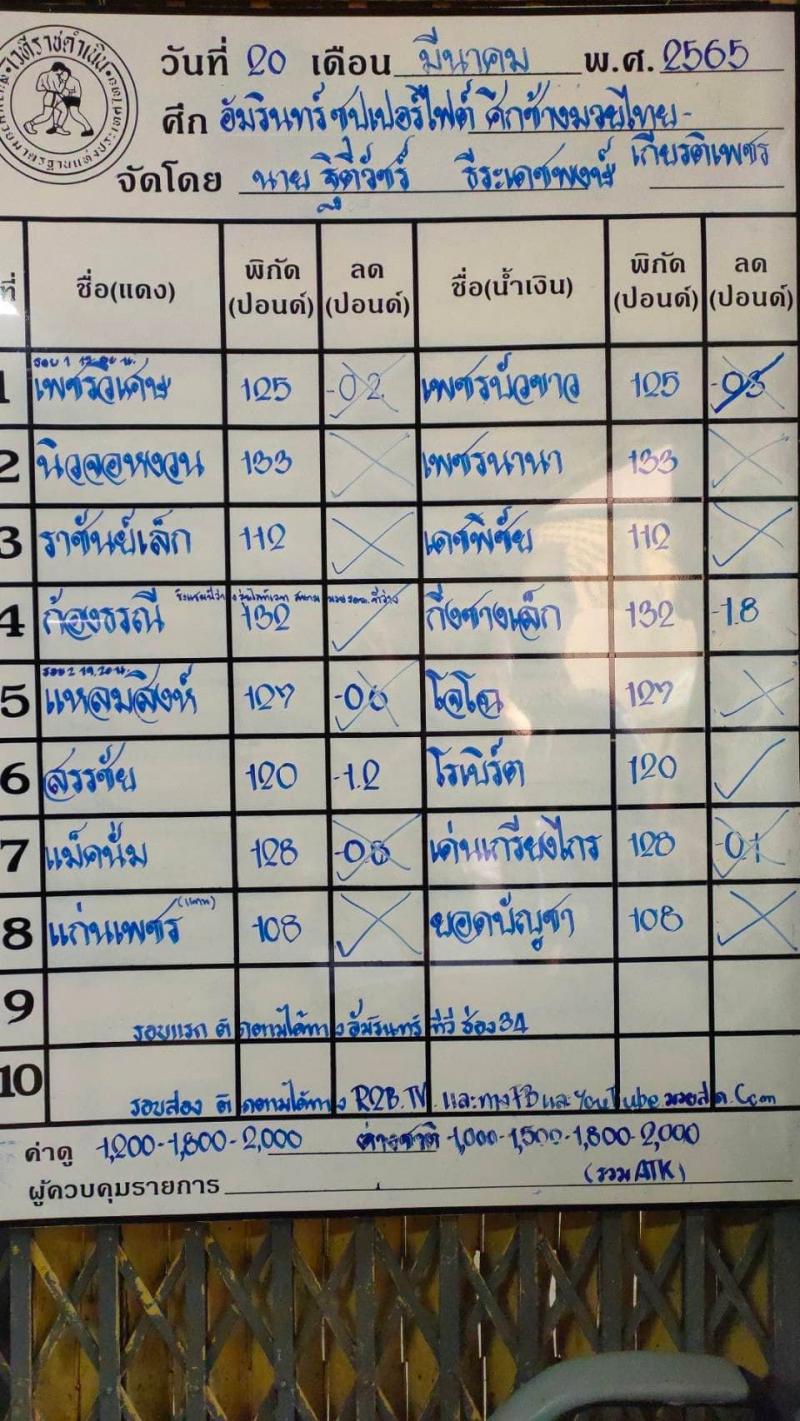 เวทีราชดำเนิน
วันที่ 20 เดือน มีนาคม พ.ศ. 2565
ศึก อัมรินทร์ ซุปเปอร์ไฟต์ ศึกช้างมวยไทย-
เกียรติเพชร
จัดโดย นาย ฐิติวัชร์ ธีระเดชพงษ์
ที่ ชื่อ(แดง) พิกัด (ปอนด์) ลด (ปอนด์) ชื่อ(น้ำเงิน) พิกัด (ปอนด์) ลด (ปอนด์)
รอบ 1
1 เพชรวิเศษ 125 -0.2 เพชรบัวขาว 125
2 นิวจอหงวน 133 เพชรนานา 133
3 ราชันย์เล็ก 112 เดชพิชัย 112
4 ก้องธรณี 132 กิ่งซางเล็ก 132 -1.8
รอบ 2 19.20 น.
5 แหลมสิงห์ 127 โจโจ 127
6 สรรชัย 120 -1.2 โรเบิร์ต 120
7 แม็คนั่ม 128 -0.8 เด่นเกรียงไกร 128 -0.1
8 แก่นเพชร (แทน) 108 ยอดบัญชา 108
9 รอบแรก ติดตามได้ทาง อัมรินทร์ ทีวี ช่อง 34
10 รอบสอง ติดตามได้ทาง R2B.TV. และทาง FB และ YouTube มวยสด.Com
ค่าดู 1,200-1,800-2,000 ต่างชาติ -1,000-1,500-1,800-2,000
(รวม ATK)
ผู้ควบคุมรายการ